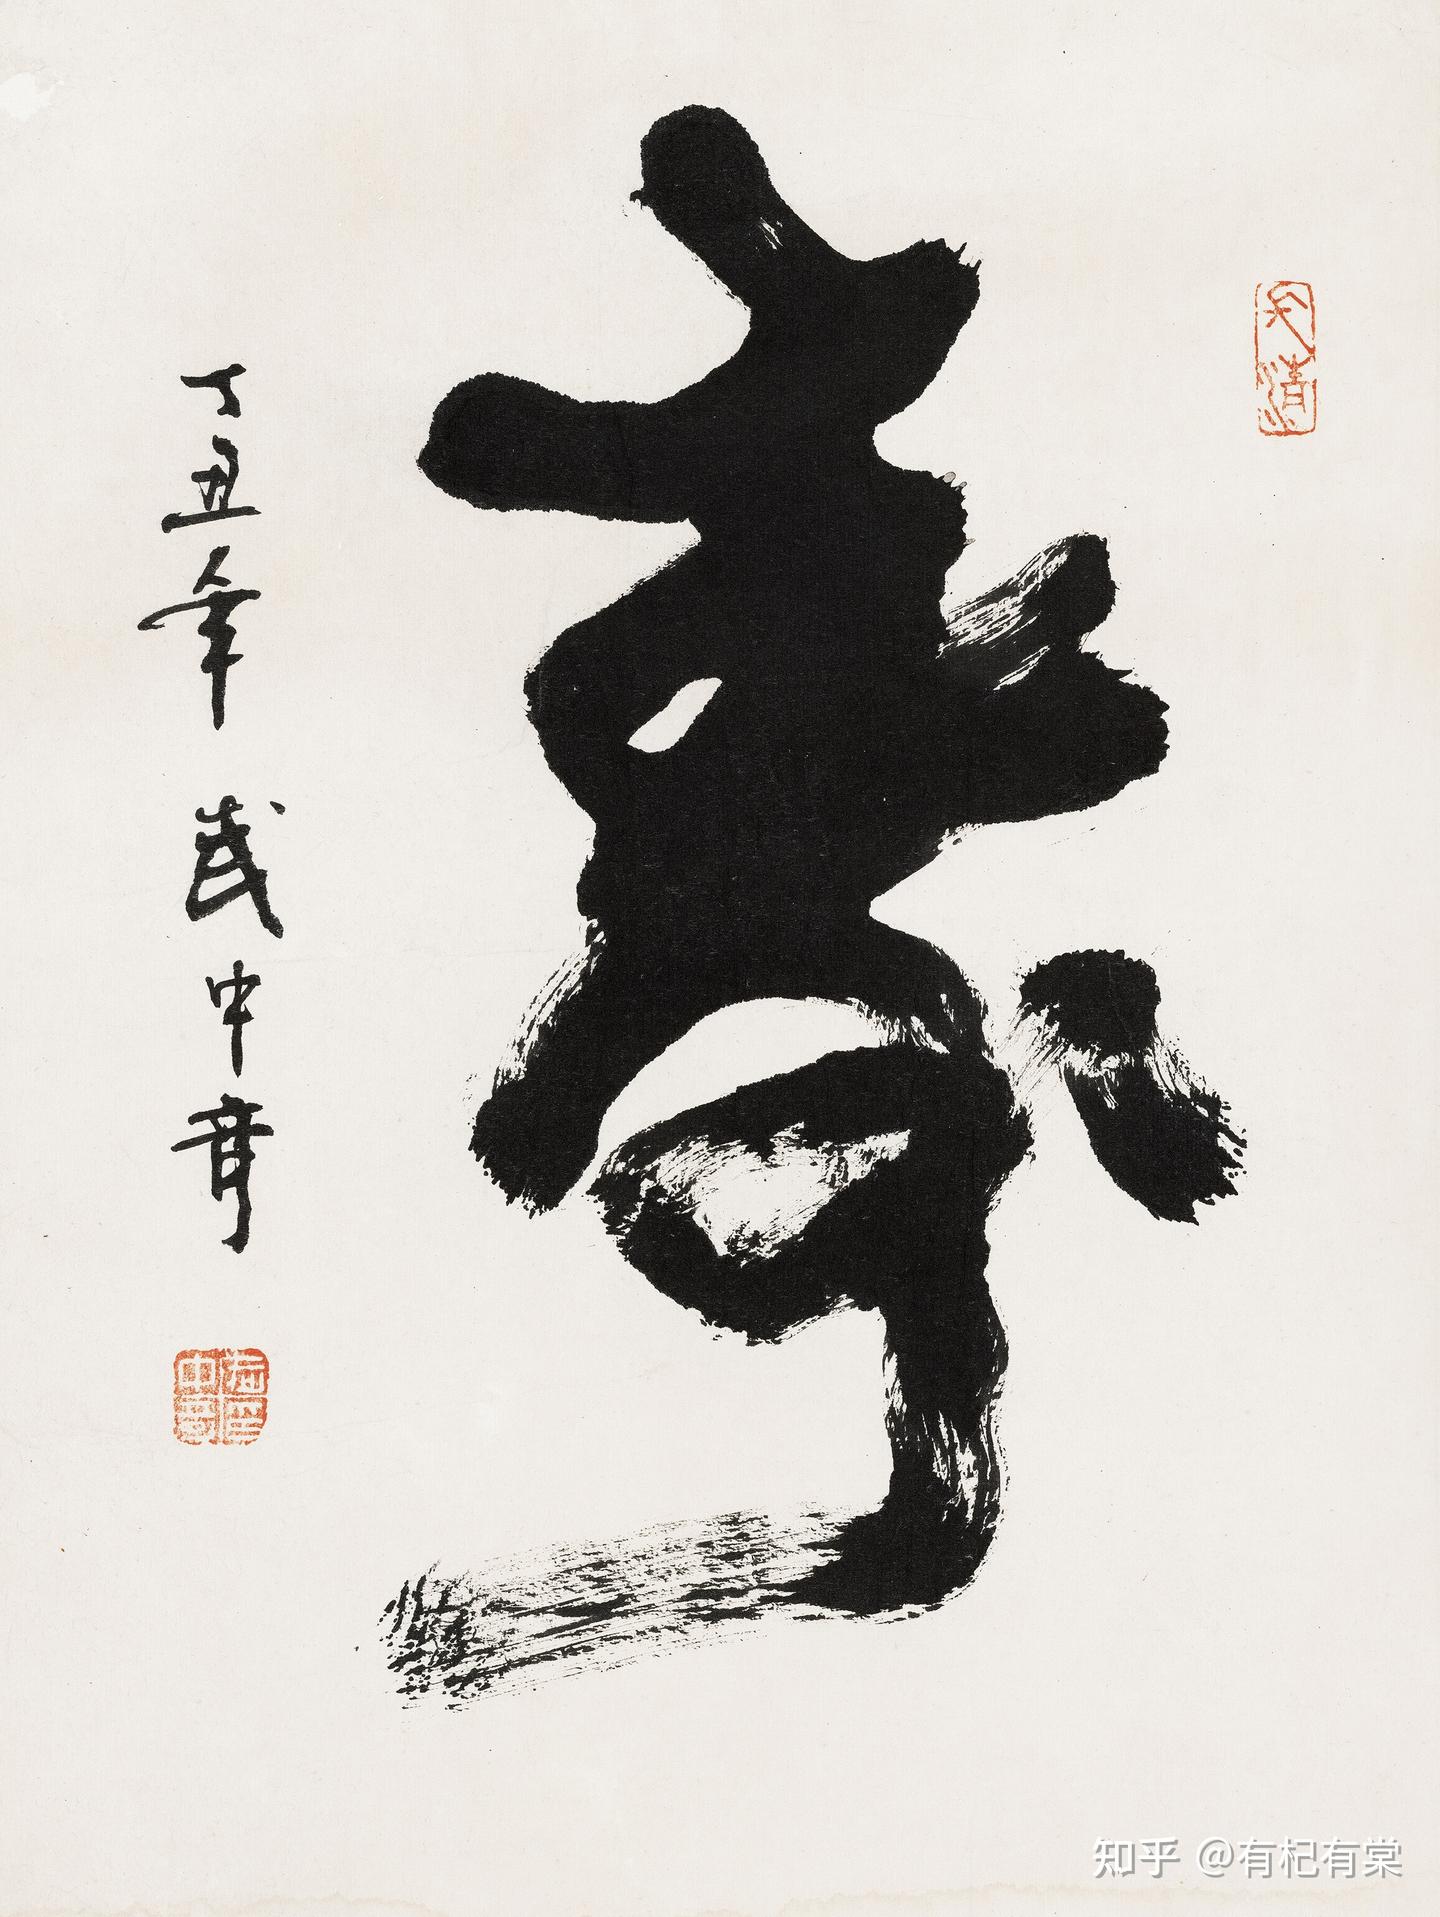 寿
丁丑年 武中奇
知乎 @有杞有棠